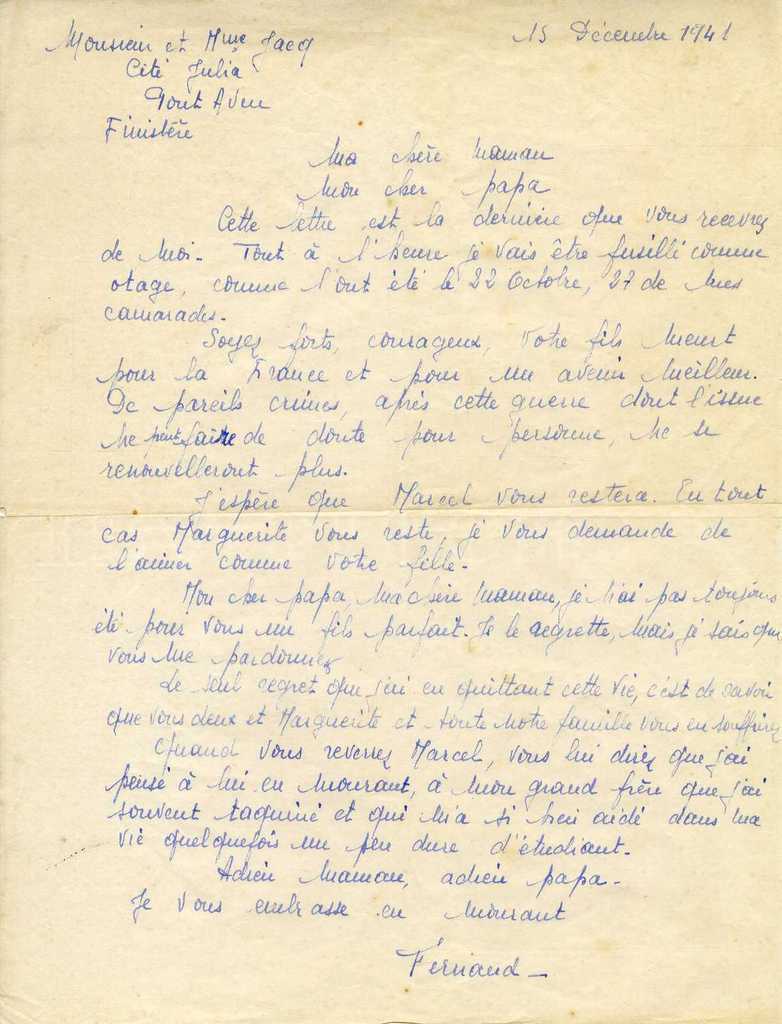 Monsieur et Mme Jacq
15 Décembre 1941
Cité Julia
Pont Aven
Finistère
Ma chère maman
Mon cher papa
Cette lettre est la dernière que vous recevrez
de moi. Tout à l'heure je vais être fusillé comme
otage, comme l'ont été le 22 Octobre, 27 de mes
camarades.
Soyez forts, courageux, votre fils meurt
pour la France et pour un avenir meilleur.
De pareils crimes, après cette guerre dont l'issue
ne peut faire de doute pour personne, ne se
renouvelleront plus.
J'espère que Marcel vous restera. En tout
cas Marguerite vous reste, je vous demande de
l'aimer comme votre fille.
Mon cher papa, ma chère maman, je n'ai pas toujours
été pour vous un fils parfait. Je le regrette, mais je sais que
vous me pardonnez
Le seul regret que j'ai en quittant cette vie, c'est de savoir
que vous deux et Marguerite et toute notre famille vous en souffrirez
Quand vous reverrez Marcel, vous lui direz que j'ai
pensé à lui en mourant, à mon grand frère que j'ai
souvent taquiné et qui m'a si bien aidé dans ma
vie quelquefois un peu dure d'étudiant.
Adieu maman, adieu papa.
Je vous embrasse en mourant
Fernand